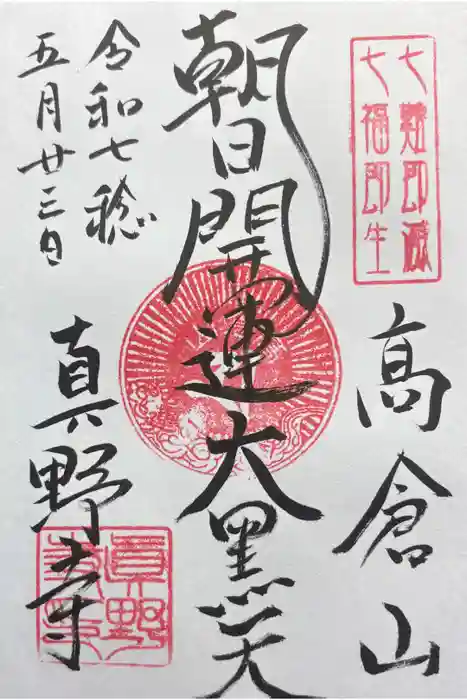 七難即滅
七福即生
高倉山
朝日開運大黒天
令和七稔
五月廿三日
真野寺